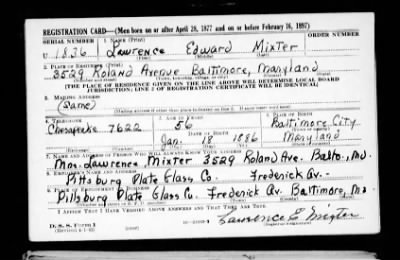 REGISTRATION CARD—(Men born on or after April 28, 1877 and on or before February 16, 1897)
SERIAL NUMBER 1. NAME (Print)
U 1836 Lawrence Edward Mixter
2. PLACE OF RESIDENCE (Print)
3529 Roland Avenue Baltimore, Maryland
[THE PLACE OF RESIDENCE GIVEN ON THE LINE ABOVE WILL DETERMINE LOCAL BOARD
JURISDICTION; LINE 2 OF REGISTRATION CERTIFICATE WILL BE IDENTICAL]
3. MAILING ADDRESS
(Same)
4. TELEPHONE 5. AGE IN YEARS 6. PLACE OF BIRTH
Chesapeake 7622 56 Baltimore City
DATE OF BIRTH
Jan. 1886 Maryland
7. NAME AND ADDRESS OF PERSON WHO WILL ALWAYS KNOW YOUR ADDRESS
Mrs. Lawrence Mixter 3529 Roland Ave. Balto., Md.
8. EMPLOYER'S NAME AND ADDRESS
Pittsburg Plate Glass Co. Frederick Av.
9. PLACE OF EMPLOYMENT OR BUSINESS
Pittsburg Plate Glass Co. Frederick Av. Baltimore, Md
I AFFIRM THAT I HAVE VERIFIED ABOVE ANSWERS AND THAT THEY ARE TRUE.
D. S. S. Form 1
Lawrence E. Mixter